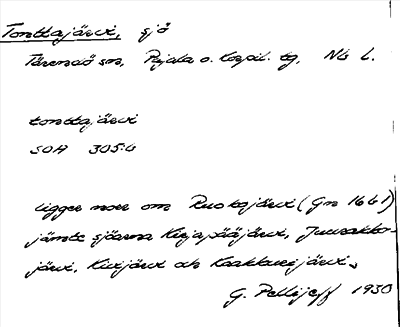 Tonttajärvi, sjö
Tärendö sn, Pajala o. Korpil. tg, Nb L.
tonttajärvi
SOA 305:4
ligger norr om Ruokojärvi (Gn 1661)
jämte sjöarna Kirjapääjärvi, Juurakko-
järvi, Kivijärvi och Kaakkurijärvi.
G. Pellijeff 1930